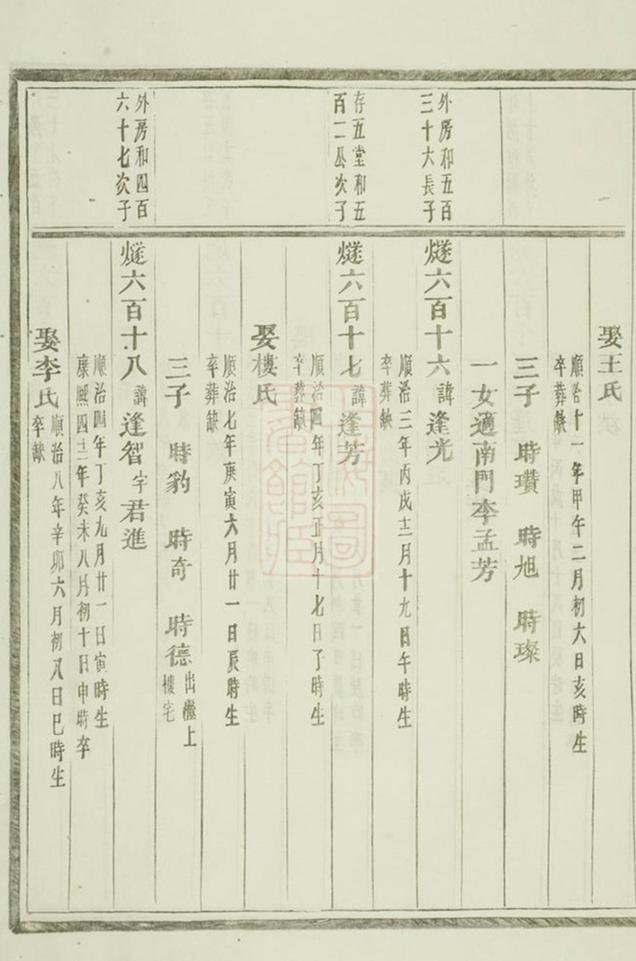 娶王氏
順治十一年甲午二月初六日亥時生
卒葬缺
三子 時瓚 時旭 時璨
一女適南門李孟芳
外房和五百
三十六長子
燧六百十六諱逢光
順治三年丙戌十二月十九日午時生
卒葬缺
存五堂和五
百二公次子
燧六百十七諱逢芳
順治四年丁亥正月十七日子時生
卒葬缺
娶樓氏
順治七年庚寅六月廿一日辰時生
卒葬缺
三子 時豹 時奇 時德出繼上樓宅
外房和四百
六十七次子
燧六百十八諱逢智字君進
順治四年丁亥九月廿一日寅時生
康熙四十二年癸未八月初十日申時卒
娶李氏
順治八年辛卯六月初八日巳時生
卒缺